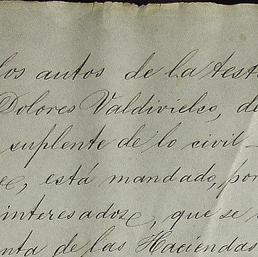 los autos de la test
Dolores Valdivielso, de
suplente de lo civil
está mandado, por
interesados, que se
nta de las Haciendas